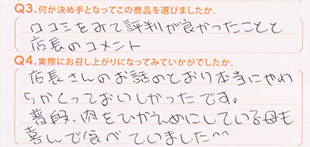 Q3.何が決め手となってこの商品を選びましたか。
口コミをみて評判が良かったことと
店長のコメント
Q4.実際にお召し上がりになってみていかがでしたか。
店長さんのお話のとおり本当にやわ
らかくっておいしかったです。
普段、肉をひかえめにしている母も
喜んで食べていました^^